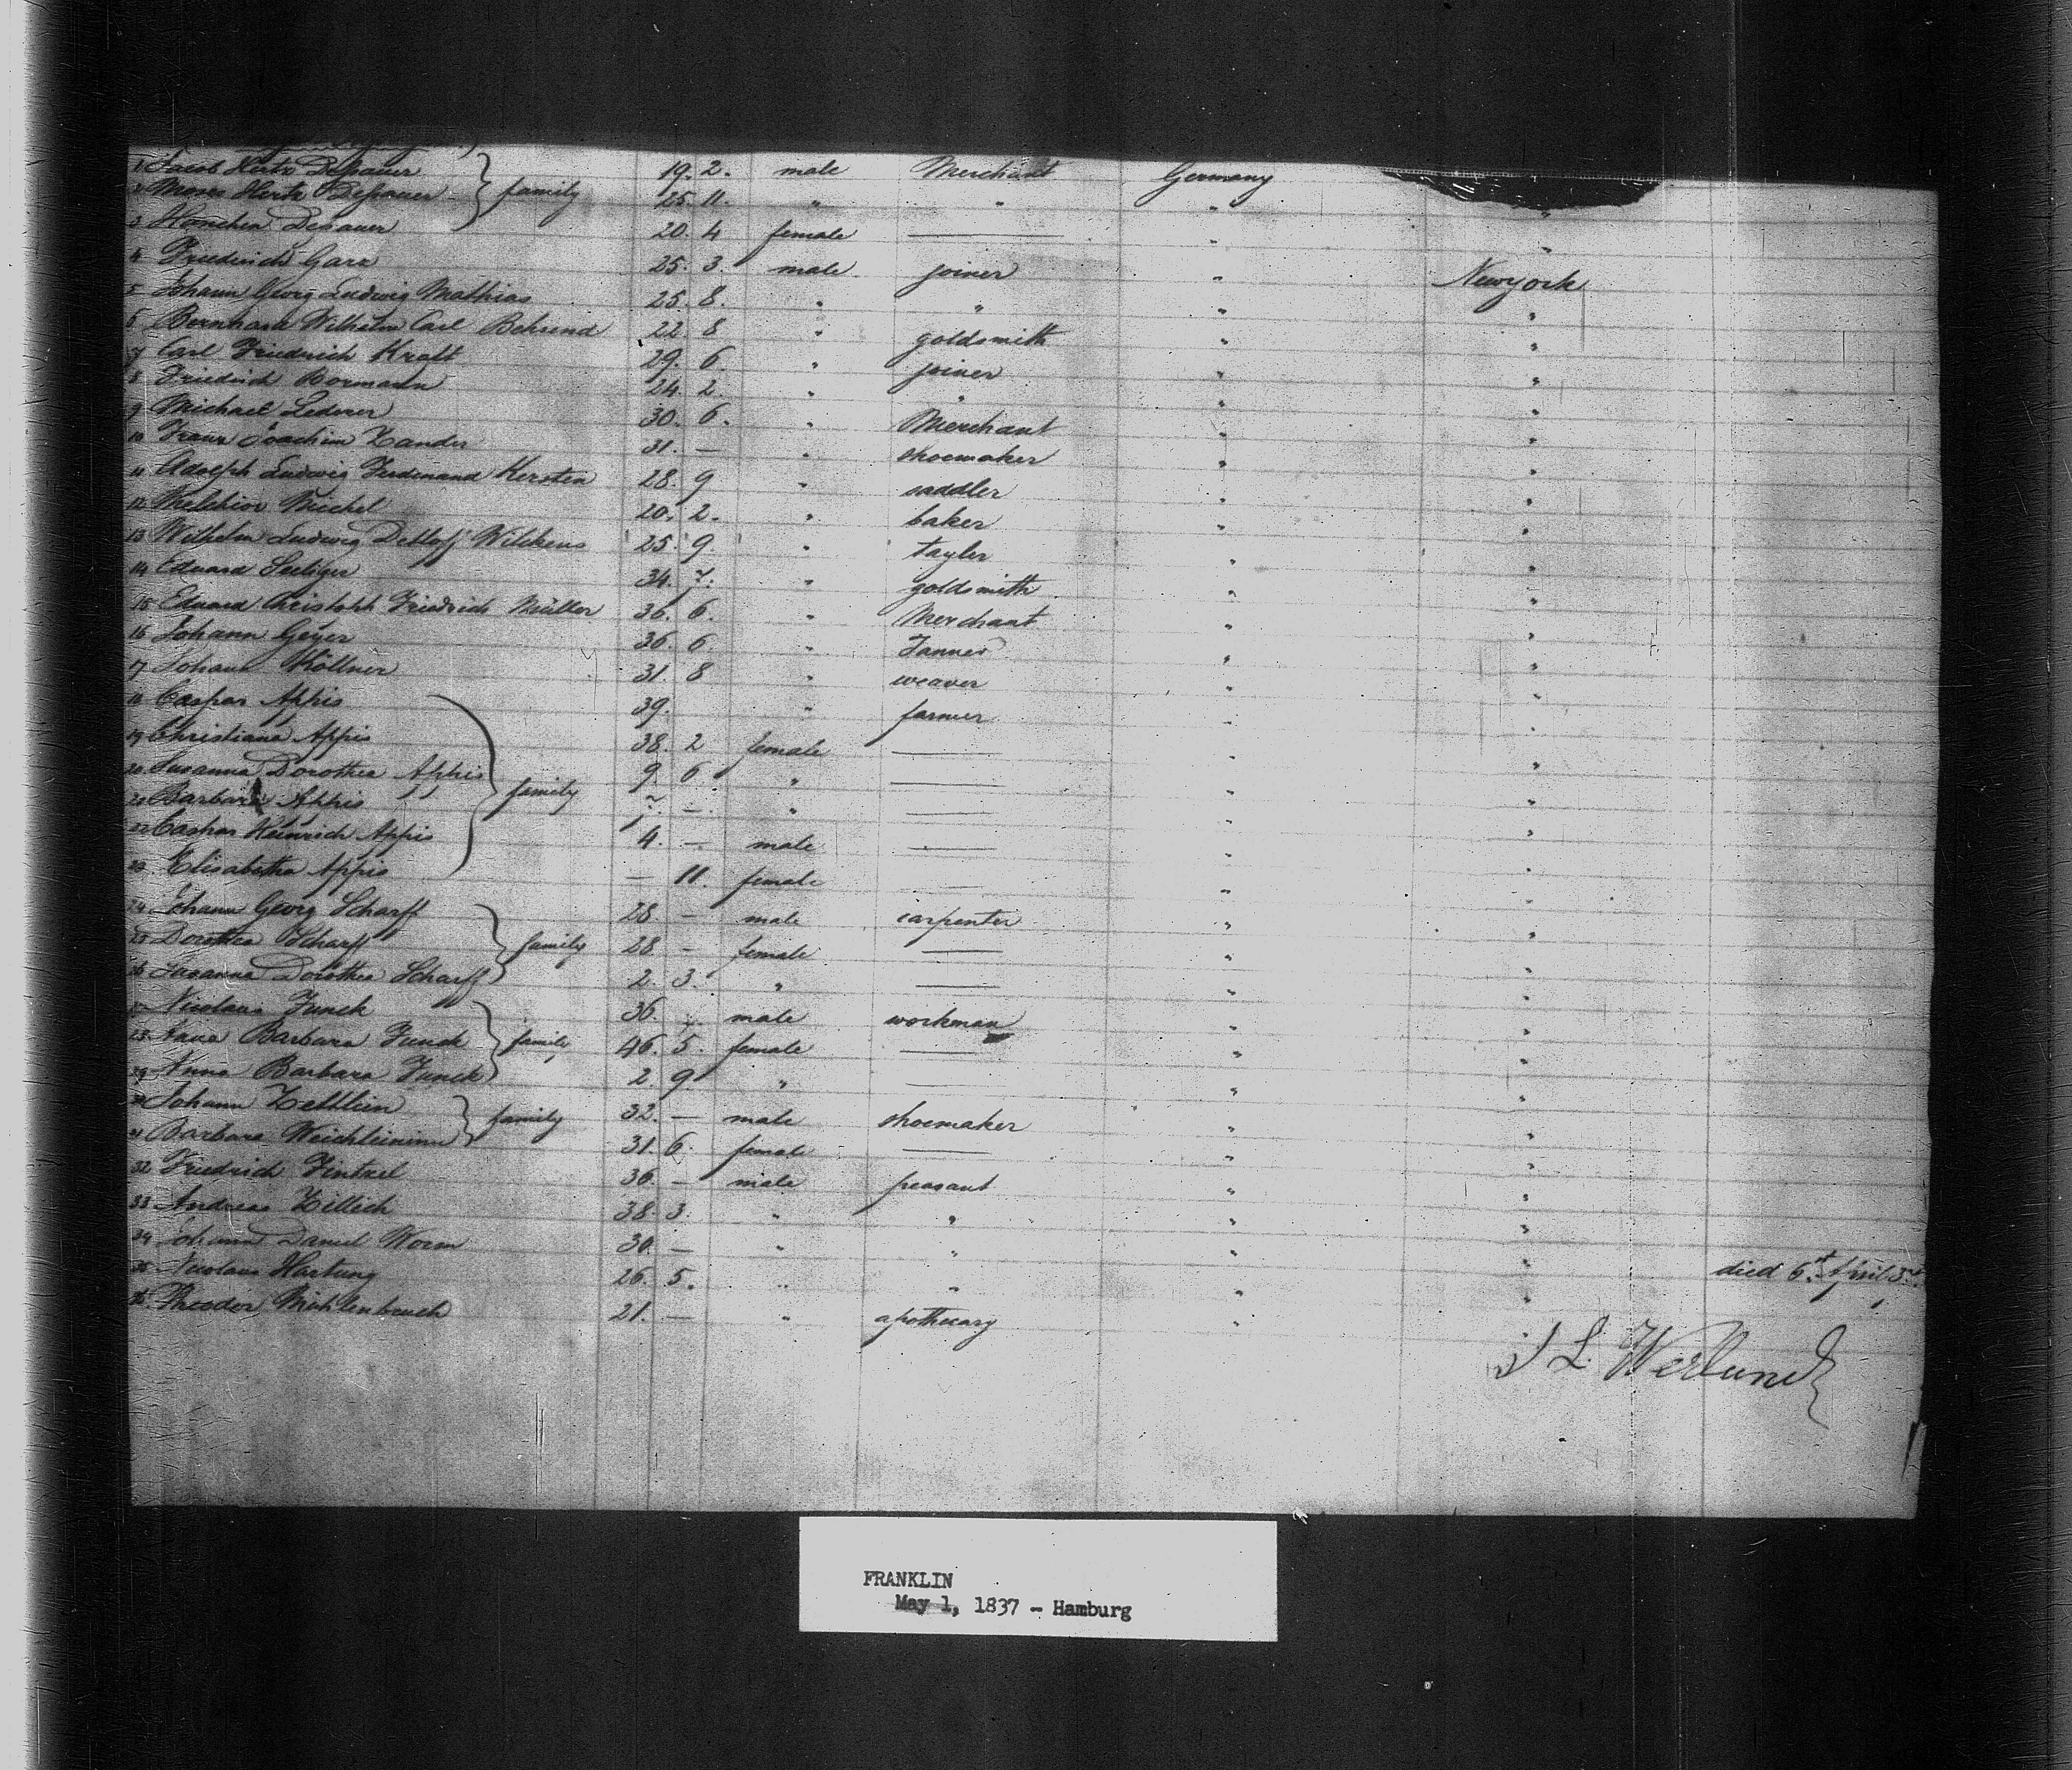 1 Jacob Hertz Dessauer } family 19. 2. male Merchant Germany
2 Moses Hertz Dessauer 25. 11. " " " "
3 Hanchen Dessauer 20. 4 female — " "
4 Friedrich Garz 25. 3. male joiner " Newyork
5 Johann Georg Ludwig Mathias 25. 8. " " " "
6 Bernhard Wilhelm Carl Behrend 22. 8 " goldsmith " "
7 Carl Friedrich Kraft 29. 6. " joiner " "
8 Friedrich Bormann 24. 2. " " " "
9 Michael Lederer 30. 6. " Merchant " "
10 Franz Joachim Zander 31. — " shoemaker " "
11 Adolph Ludwig Ferdinand Kersten 28. 9 " saddler " "
12 Melchior Michel 20. 2. " baker " "
13 Wilhelm Ludwig Detloff Wilckens 25. 9. " tayler " "
14 Eduard Seeliger 34. 7. " goldsmith " "
15 Eduard Christoph Friedrich Müller 36. 6. " Merchant " "
16 Johann Geyer 36 6. " Tanner " "
17 Johann Köllner 31. 8 " weaver " "
18 Caspar Appis 39. " farmer " "
19 Christiana Appis 38. 2 female — " "
20 Susanna Dorothea Appis } family 9. 6 " — " "
21 Barbara Appis 7. — " — " "
22 Caspar Heinrich Appis 4. — male — " "
23 Elisabetha Appis — 11. female — " "
24 Johann Georg Scharff 28. — male carpenter " "
25 Dorothea Scharff } family 28 — female — " "
26 Susanna Dorothea Scharff 2. 3. " — " "
27 Nicolaus Funck 36. — male workman " "
28 Anna Barbara Funck } family 46. 5. female — " "
29 Anna Barbara Funck 2. 9 " — " "
30 Johann Zettlein } family 32. — male shoemaker " "
31 Barbara Weichleininn 31. 6. female — " "
32 Friedrich Fintzel 36. — male peasant " "
33 Andreas Zillich 38. 3. " " " "
34 Johann Daniel Worm 30. — " " " "
35 Nicolaus Hartung 26. 5. " " " " died 6st April
36 Theodor Mühlenbruch 21. — " apothecary " "
FRANKLIN
May 1, 1837 - Hamburg